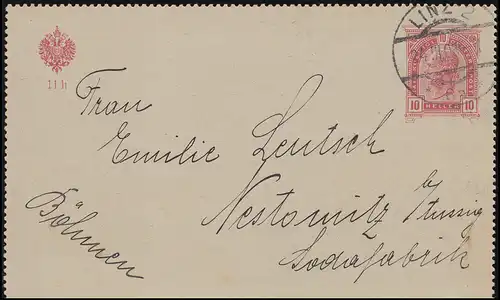 LINZ 2
11 h
10 10
10 HELLER 10
Frau
Emilie Leutsch
Nestomitz by
Aussig
Sodafabrik
Böhmen